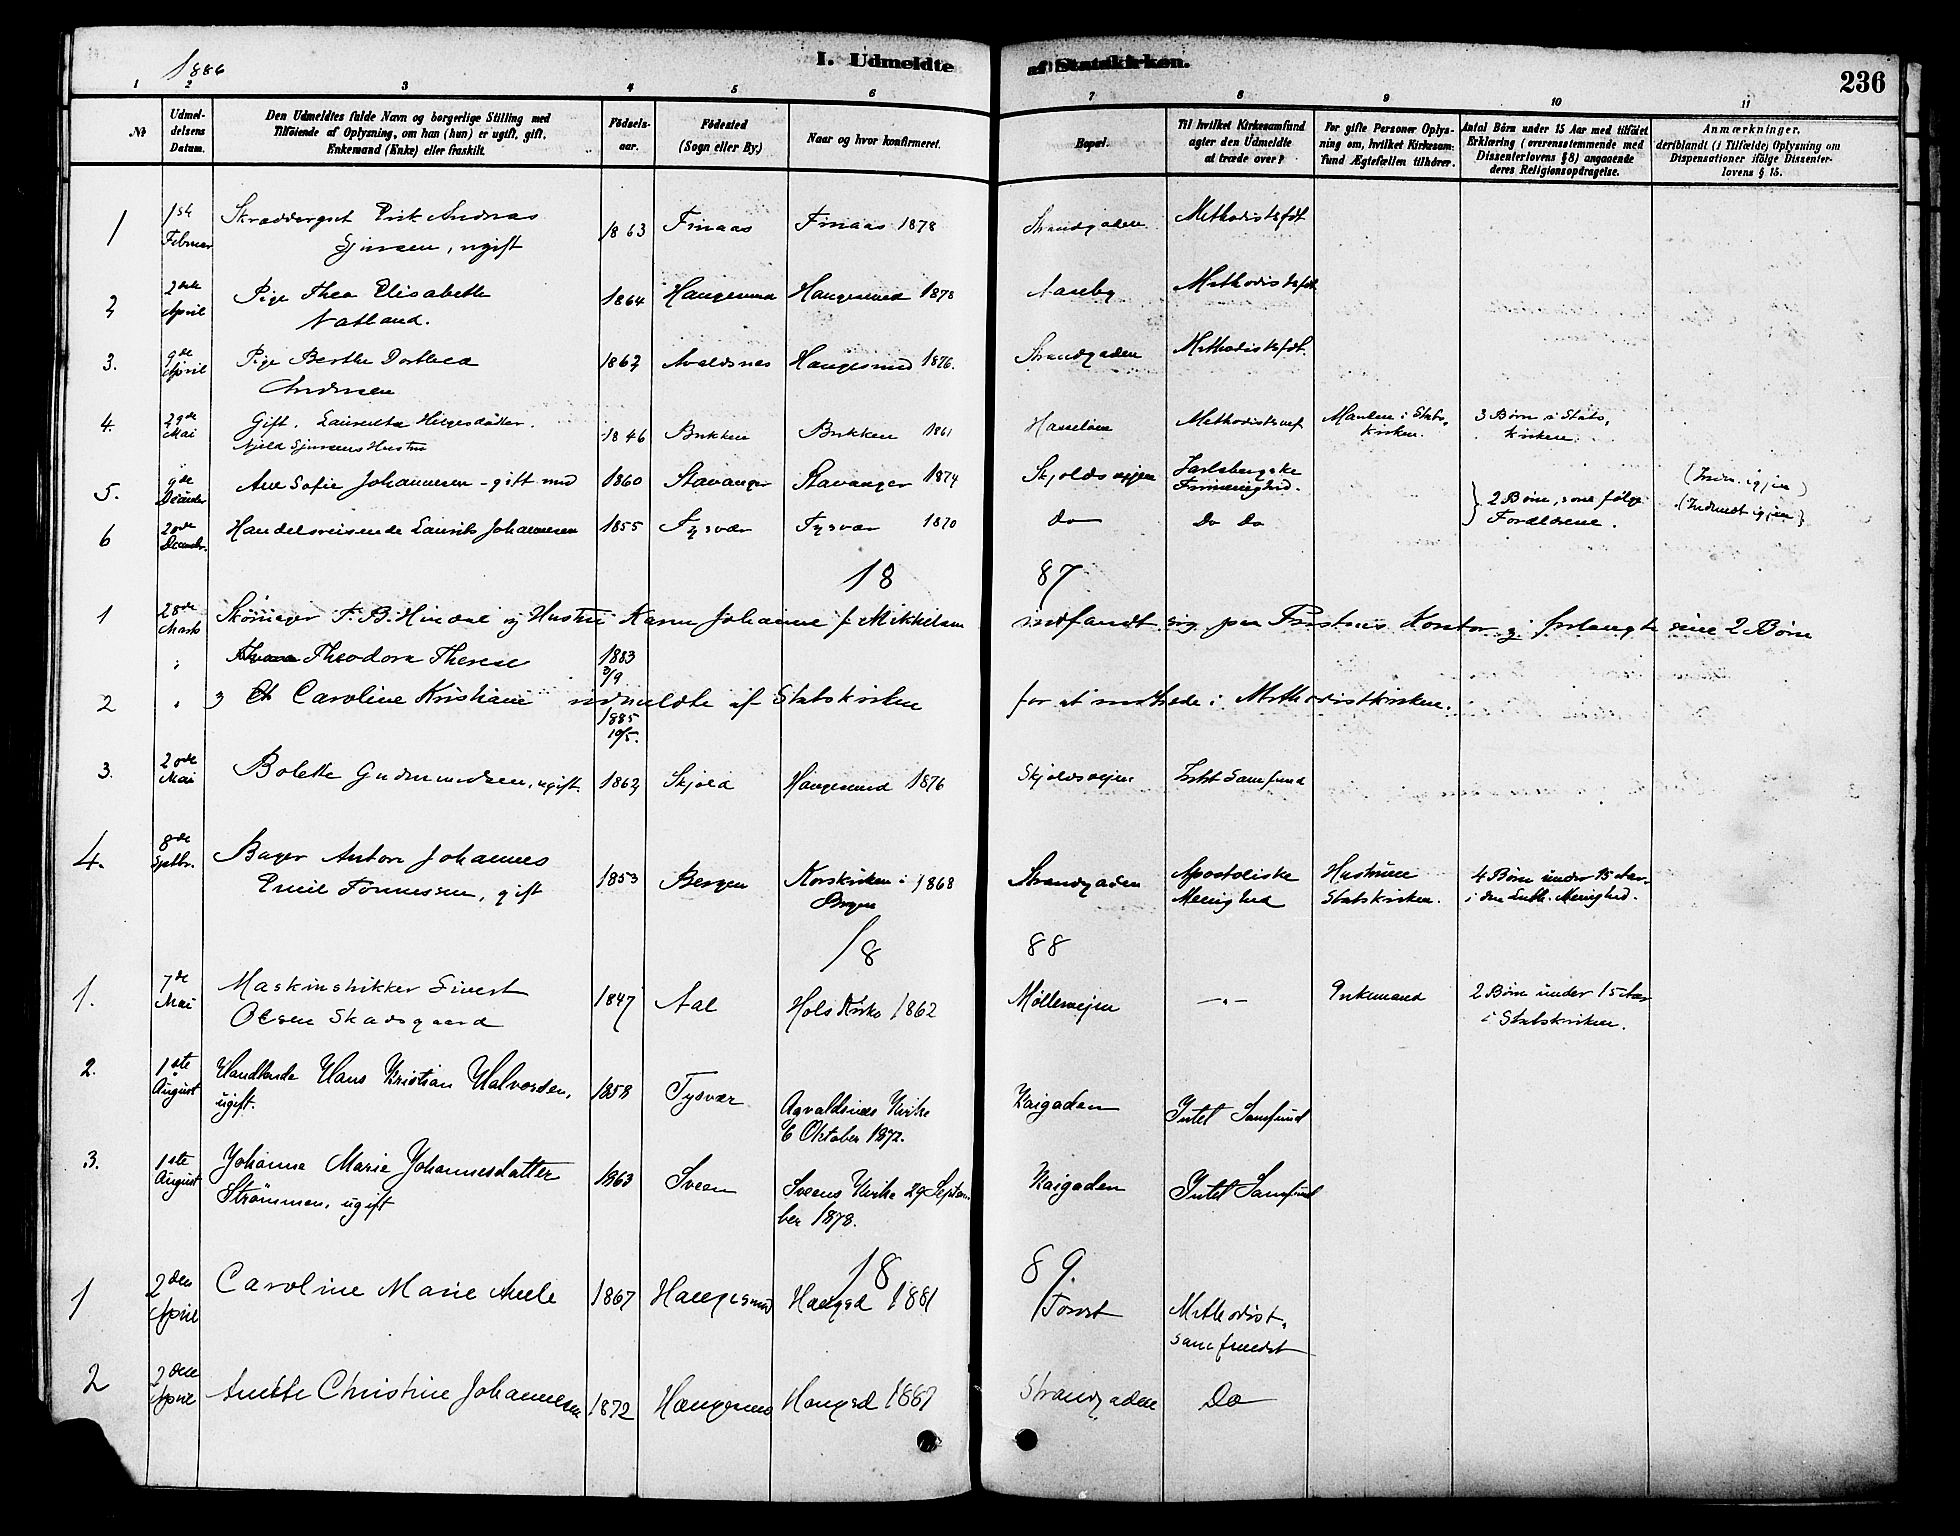 I. Udmeldte af Statskirken. 236
1886
1 2 3 4 5 6 7 8 9 10 11
№
Udmeldelsens Datum.
Den Udmeldtes fulde Navn og borgerlige Stilling med
Tilföiende af Oplysning, om han (hun) er ugift, gift,
Enkemand (Enke) eller fraskilt.
Födselsaar.
Födested
(Sogn eller By.)
Naar og hvor konfirmeret.
Bopæl.
Til hvilket Kirkesamfund
agter den Udmeldte
at træde over?
For gifte Personer Oplysning
om, hvilket Kirkesamfund
Ægtefællen tilhører.
Antal Börn under 15 Aar med tilföiet
Erklæring (overensstemmende med
Dissenterlovens § 8) angaaende
deres Religionsopdragelse.
Anmærkninger,
deriblandt (i Tilfælde) Oplysning om
Dispensationer ifölge Dissenterlovens
§ 15.
1 1ste Februar Skræddergut Erik Andreas 1863 Finaas Finaas 1878 Strandgaden Methodistsfdt
Sjursen, ugift
2 2den April Pige Thea Elisabeth 1864 Haugesund Haugesund 1878 Aaseby Methodistsfdt
Natland.
3. 9de April Pige Berthe Dorthea 1862 Avaldsnes Haugesund 1876. Strandgaden Methodistsfdt.
Andersen
4. 29de Mai Gift. Laurentse Helgesdatter. 1846 Bukken Bukken 1861 Methodistsamf Manden i Stats- 3 Börn i Stats-
Sjursens Hustru kirken. kirken.
5. 9de December Ane Sofie Johannesen - gift med 1860 Stavanger Stavanger 1874 Skjoldsvejen Jarlsbergske (Indm. igjen)
Frimenighed. } 2 Børn, som følge
6 20de Decembr. Handelsreisende Laurits Johannesen 1855 Tysvær Tysvær 1870 do Do Do Forældrene. (Indmeldt igjen)
18 87
1 28de Marts F. B. og Hustru Karen Johanne f. Mikkelsen indfandt sig paa Prestens Kontor og forlangte sine 2 Børn
" Theodora Therese 1883
3/9
2 " 3 Caroline Kristiane udmeldte af Statskirken for at indtræde i Methodistkirken.
1885
10/5.
3. 20de Mai Bolette Gudmundsen, ugift. 1862 Skjold Haugesund 1876 Skjoldsvejen Intet Samfund
4. 8de Septbr. Bager Anton Johannes 1853 Bergen Korskirken i 1868 Strandgaden Apostoliske Hustruen 4 Børn under 15 Aar
Emil Tønnessen, gift Bergen Menighed Statskirken. i den Luth. Menighed.
18 88
1. 7de Mai Maskinstrikker Sivert 1847 Aal Hols Kirke 1862 Møllevejen — " — Enkemand 2 Børn under 15 Aar
Olsen Skadsgaard i Statskirken.
2. 1ste August Handlende Hans Kristian Halvorsen, 1858 Tysvær Agvaldsnes Kirke Kaigaden Intet Samfund
ugift. 6 Oktober 1872.
3. 1ste August Johanna Marie Johannesdatter 1863 Sveen Sveens Kirke 29 Septem- Kaigaden Intet Samfund
Strømmen, ugift ber 1878.
18 89.
1 2den April Caroline Marie 1867 Haugesund Haugsd 1881 Torvet Methodist-
samfundet
2 2den April Anette Christine Johannesen 1872 Haugesund Haugsd 1887 Strandgaden Do